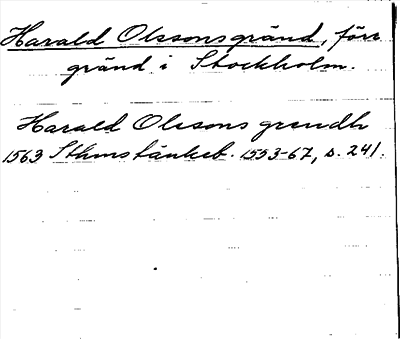 Harald Olssons gränd, förr
gränd i Stockholm.
Harald Olssons grendh
1563 Sthms tänkeb. 1553-67, s. 241.